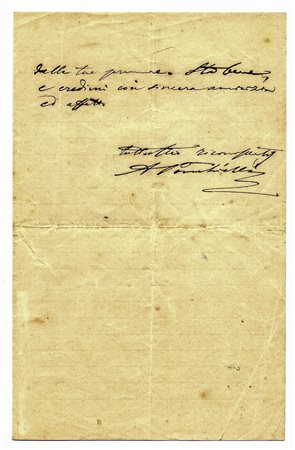 delle tue premure. Sto bene,
e credimi con sincera amicizia
ed affetto
tutto tuo riconoscente
A Ponchielli